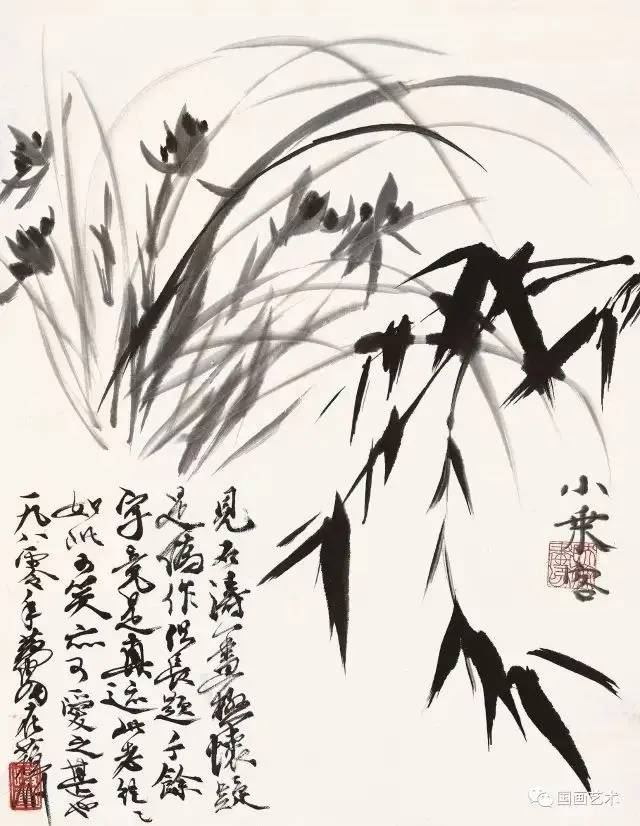 小乘客
見石濤一畫極懷疑
是偽作但長題千餘
字竟是真迹此老往々
如此可笑亦可愛之甚也
一九八零年
国画艺术